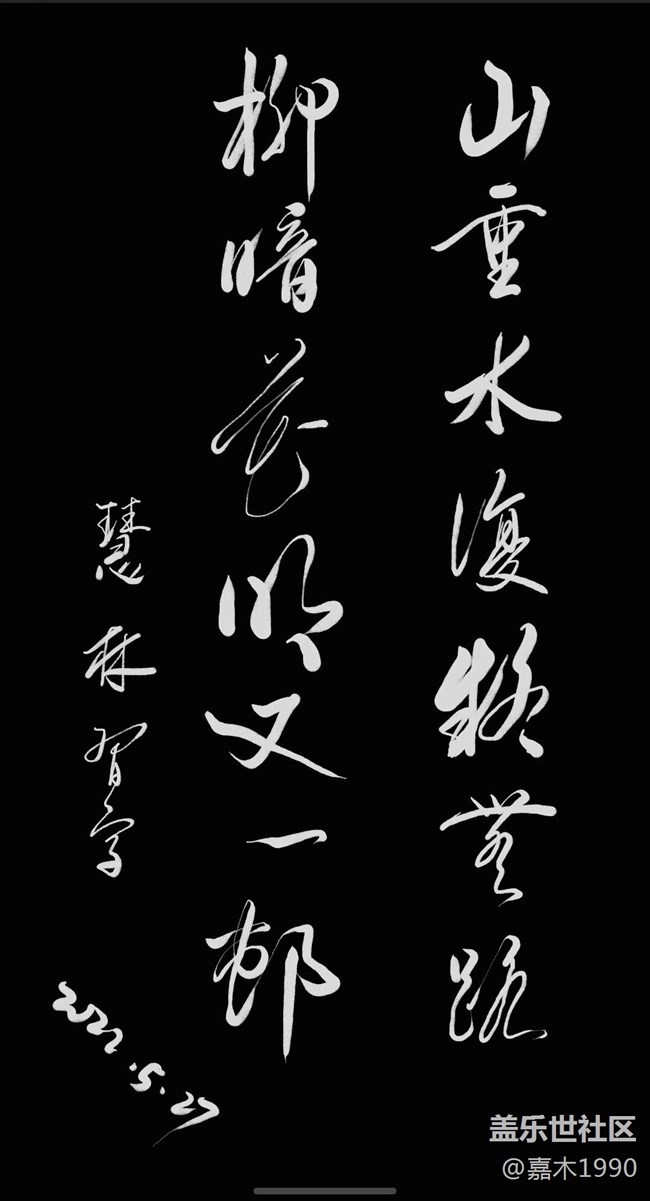 山重水復疑無路
柳暗花明又一邨
慧林習字
2022.5.27
盖乐世社区
@嘉木1990